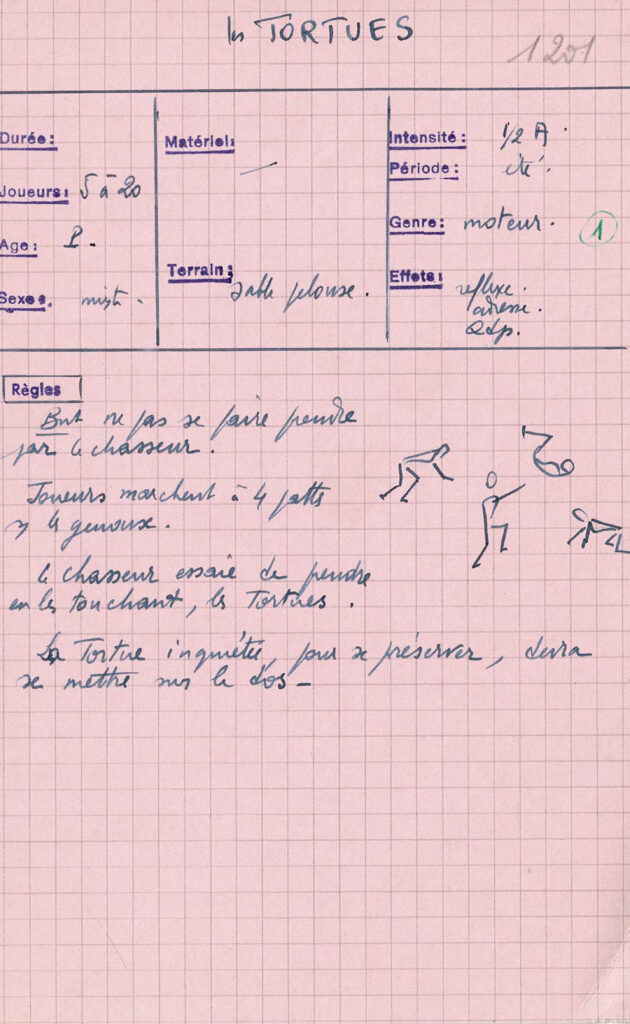 les TORTUES
1201
Durée:
Joueurs: 5 à 20
Age: P.
Sexes. mixte.
Matériel: —
Terrain: sable pelouse.
Intensité: 1/2 A.
Période: été.
Genre: moteur. 1
Effets: reflexe.
adresse.
Règles
But ne pas se faire prendre
par le chasseur.
Joueurs marchent à 4 pattes
le genoux.
le chasseur essaie de prendre
en les touchant, les Tortues.
La Tortue inquiétée, pour se préserver, devra
se mettre sur le dos —